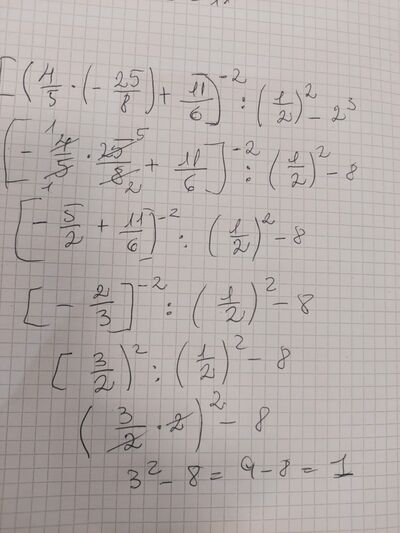 [(4/5 · (- 25/8) + 11/6]^-2 : (1/2)^2 - 2^3
(- 4/5 · 25/8 + 11/6]^-2 : (1/2)^2 - 8
[- 5/2 + 11/6)^-2 : (1/2)^2 - 8
[- 2/3]^-2 : (1/2)^2 - 8
[3/2)^2 : (1/2)^2 - 8
(3/2 · 2)^2 - 8
3^2 - 8 = 9 - 8 = 1